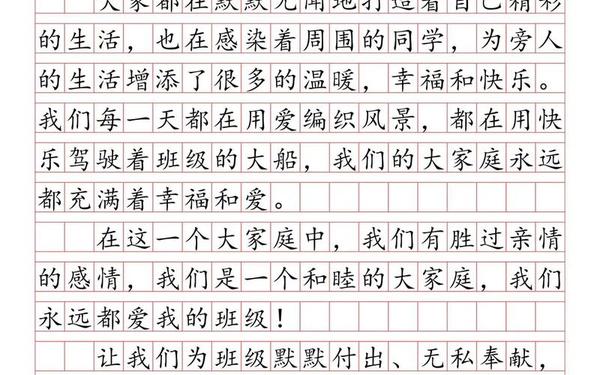 大家都在默默无闻地打造着自己精彩
的生活，也在感染着周围的同学，为旁人
的生活增添了很多的温暖，幸福和快乐。
我们每一天都在用爱编织风景，都在用快
乐驾驶着班级的大船，我们的大家庭永远
都充满着幸福和爱。
在这一个大家庭中，我们有胜过亲情
的感情，我们是一个和睦的大家庭，我们
永远都爱我的班级！
让我们为班级默默付出、无私奉献，